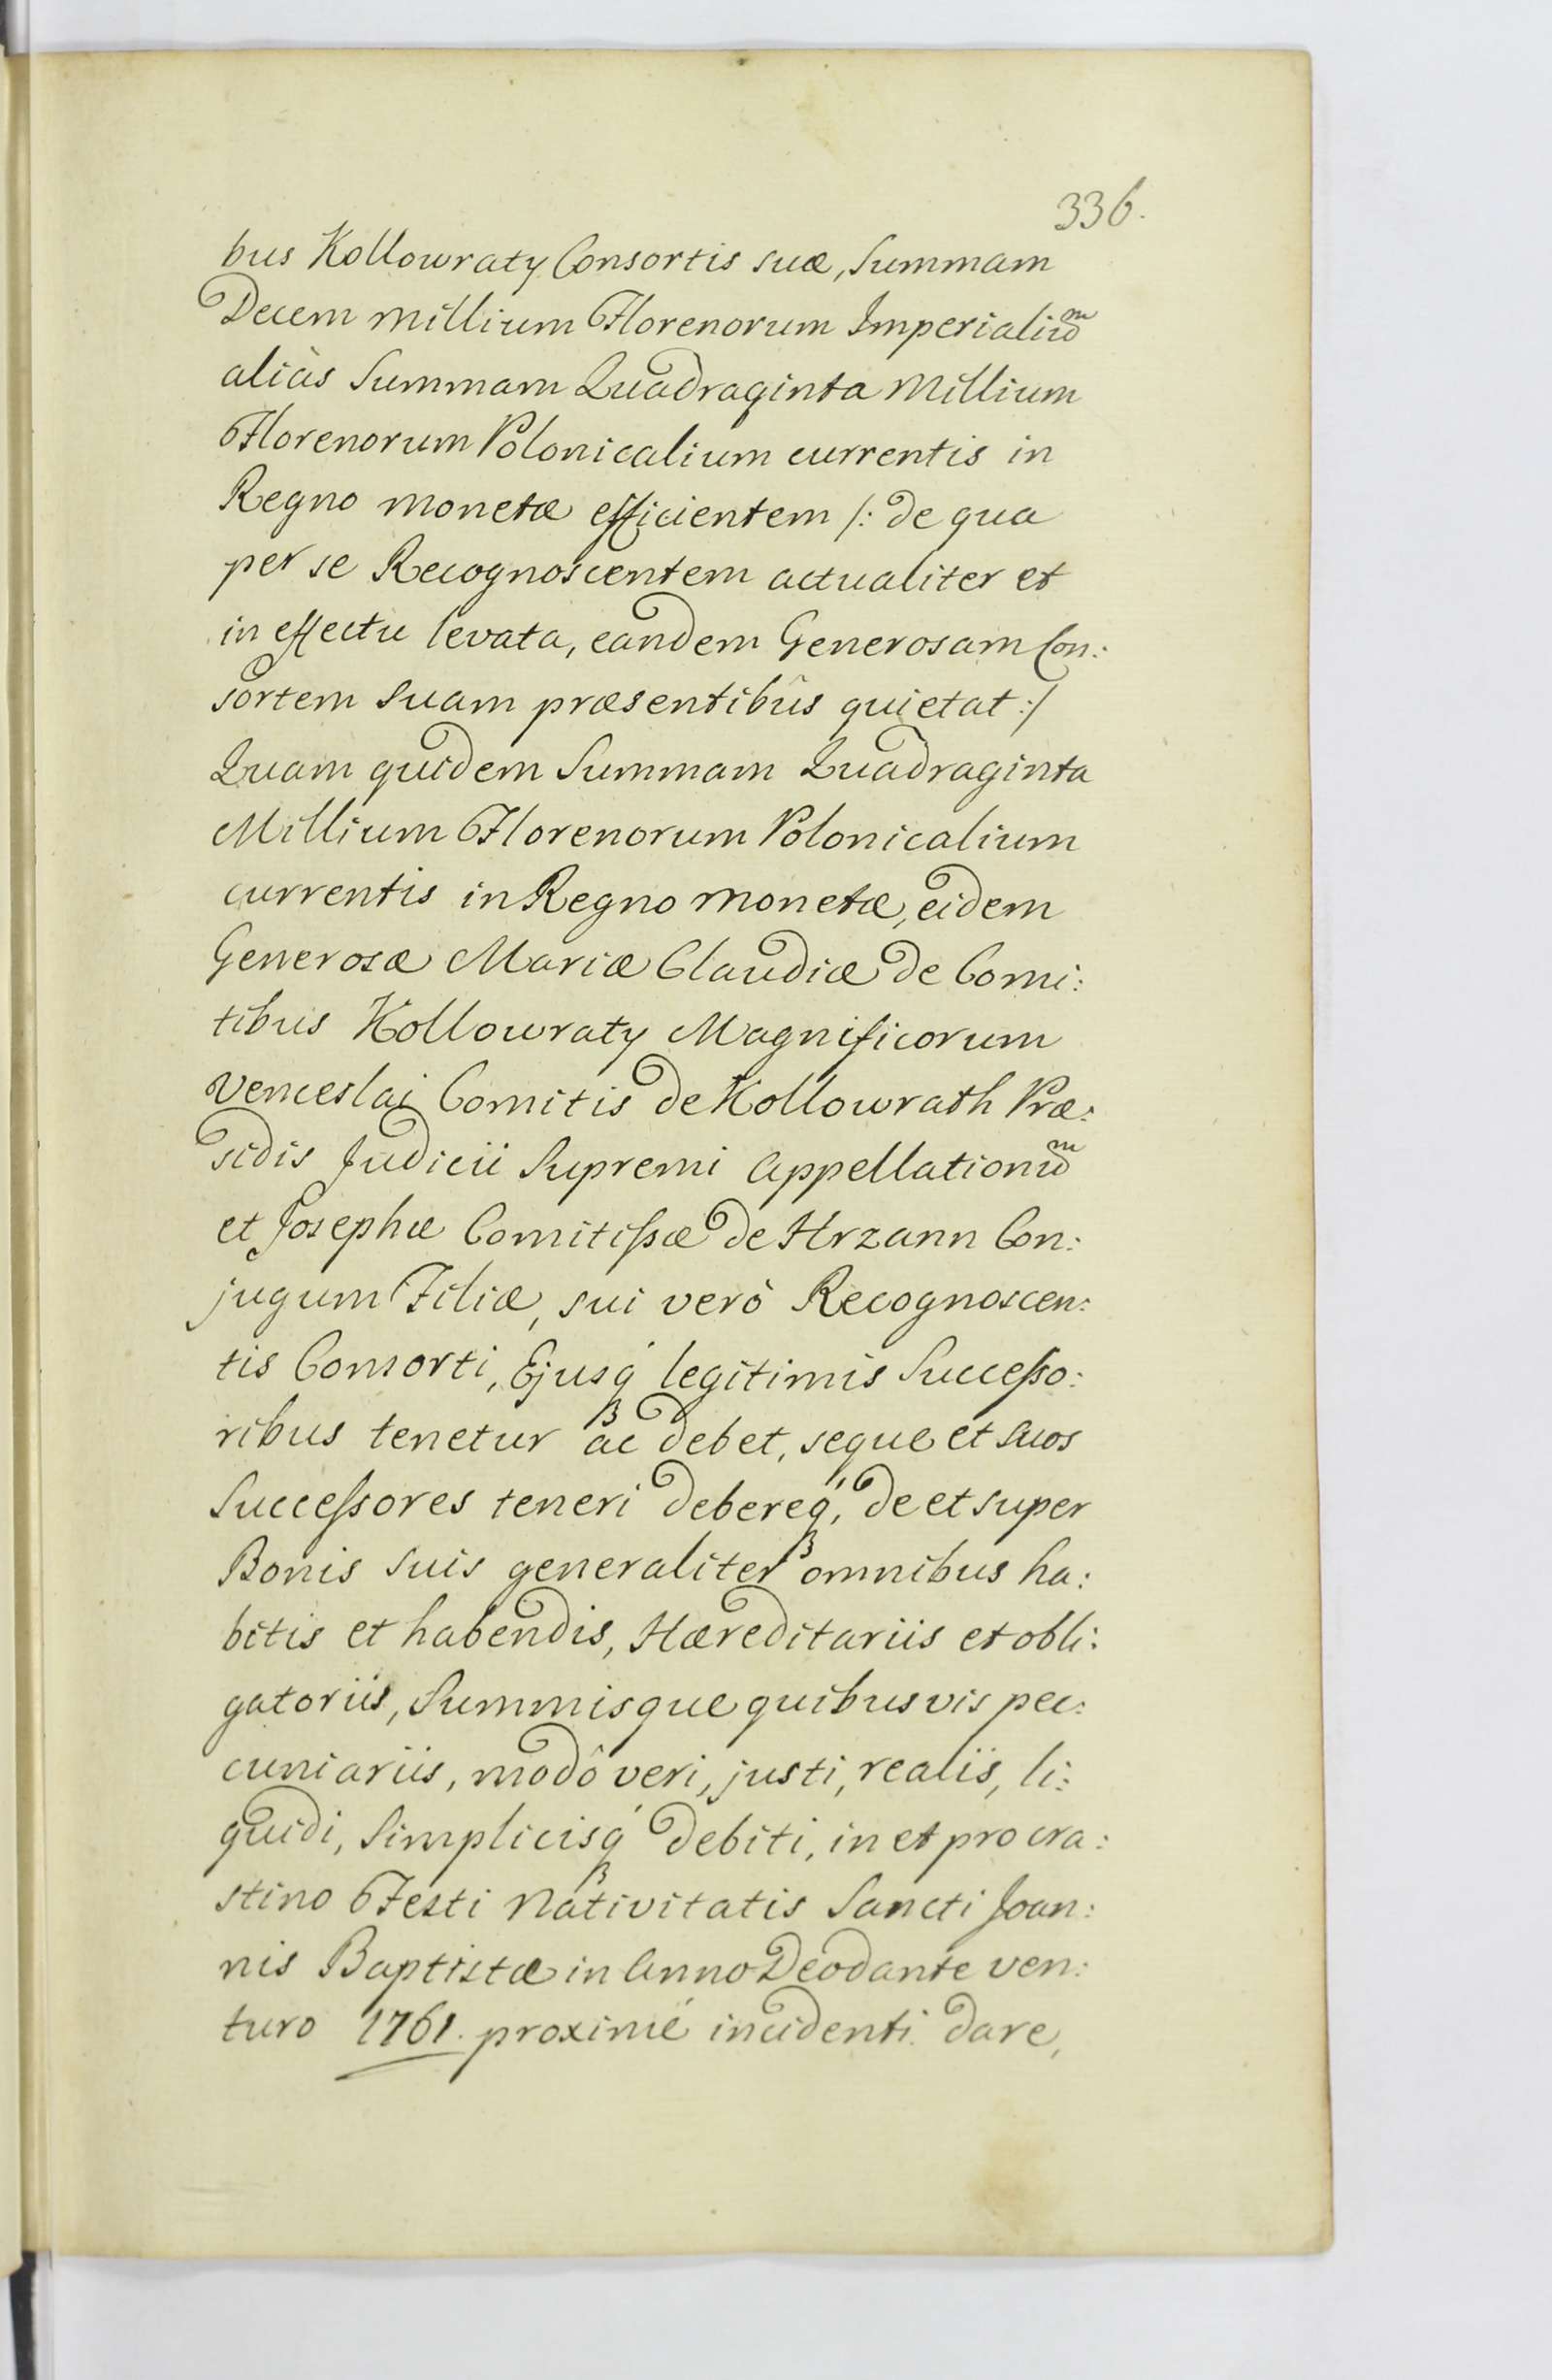 336.
bus Kollowraty Consortis suæ, Summam
Decem millium Florenorum Imperialiũm
aliàs Summam Quadraginta Millium
Florenorum Polonicalium currentis in
Regno monetæ efficientem /: de qua
per se Recognoscentem actualiter et
in effectu levata, eandem Generosam Con:
sortem Suam præsentibûs quietat :/
Quam quidem Summam Quadraginta
Millium Florenorum Polonicalium
currentis in Regno monetæ, eidem
Generosæ Mariæ Claudiæ de Comi:
tibus Kollowraty Magnificorum
Venceslai Comitis de Kollowrath Præ:
sidis Judicii Supremi Appellationũm
et Josephæ Comitißæ de Hrzann Con:
jugum Filiæ, sui verò Recognoscen:
tis Consorti, Ejusq́ꝫ legitimis Succeßo:
ribus tenetur ac debet, seque et suos
Succeßores teneri debereq́ꝫ, de et super
Bonis suis generaliter omnibus ha:
bitis et habendis, Hæreditariis et obli:
gatoriis, Summisque quibusvis pec:
cuniariis, modô veri, justi, realis, li:
quidi, Simplicisq́ꝫ debiti, in et pro cra:
stino Festi Nativitatis Sancti Joan:
nis Baptistæ in Anno Deo dante ven:
turo 1761. proximé incidenti dare,